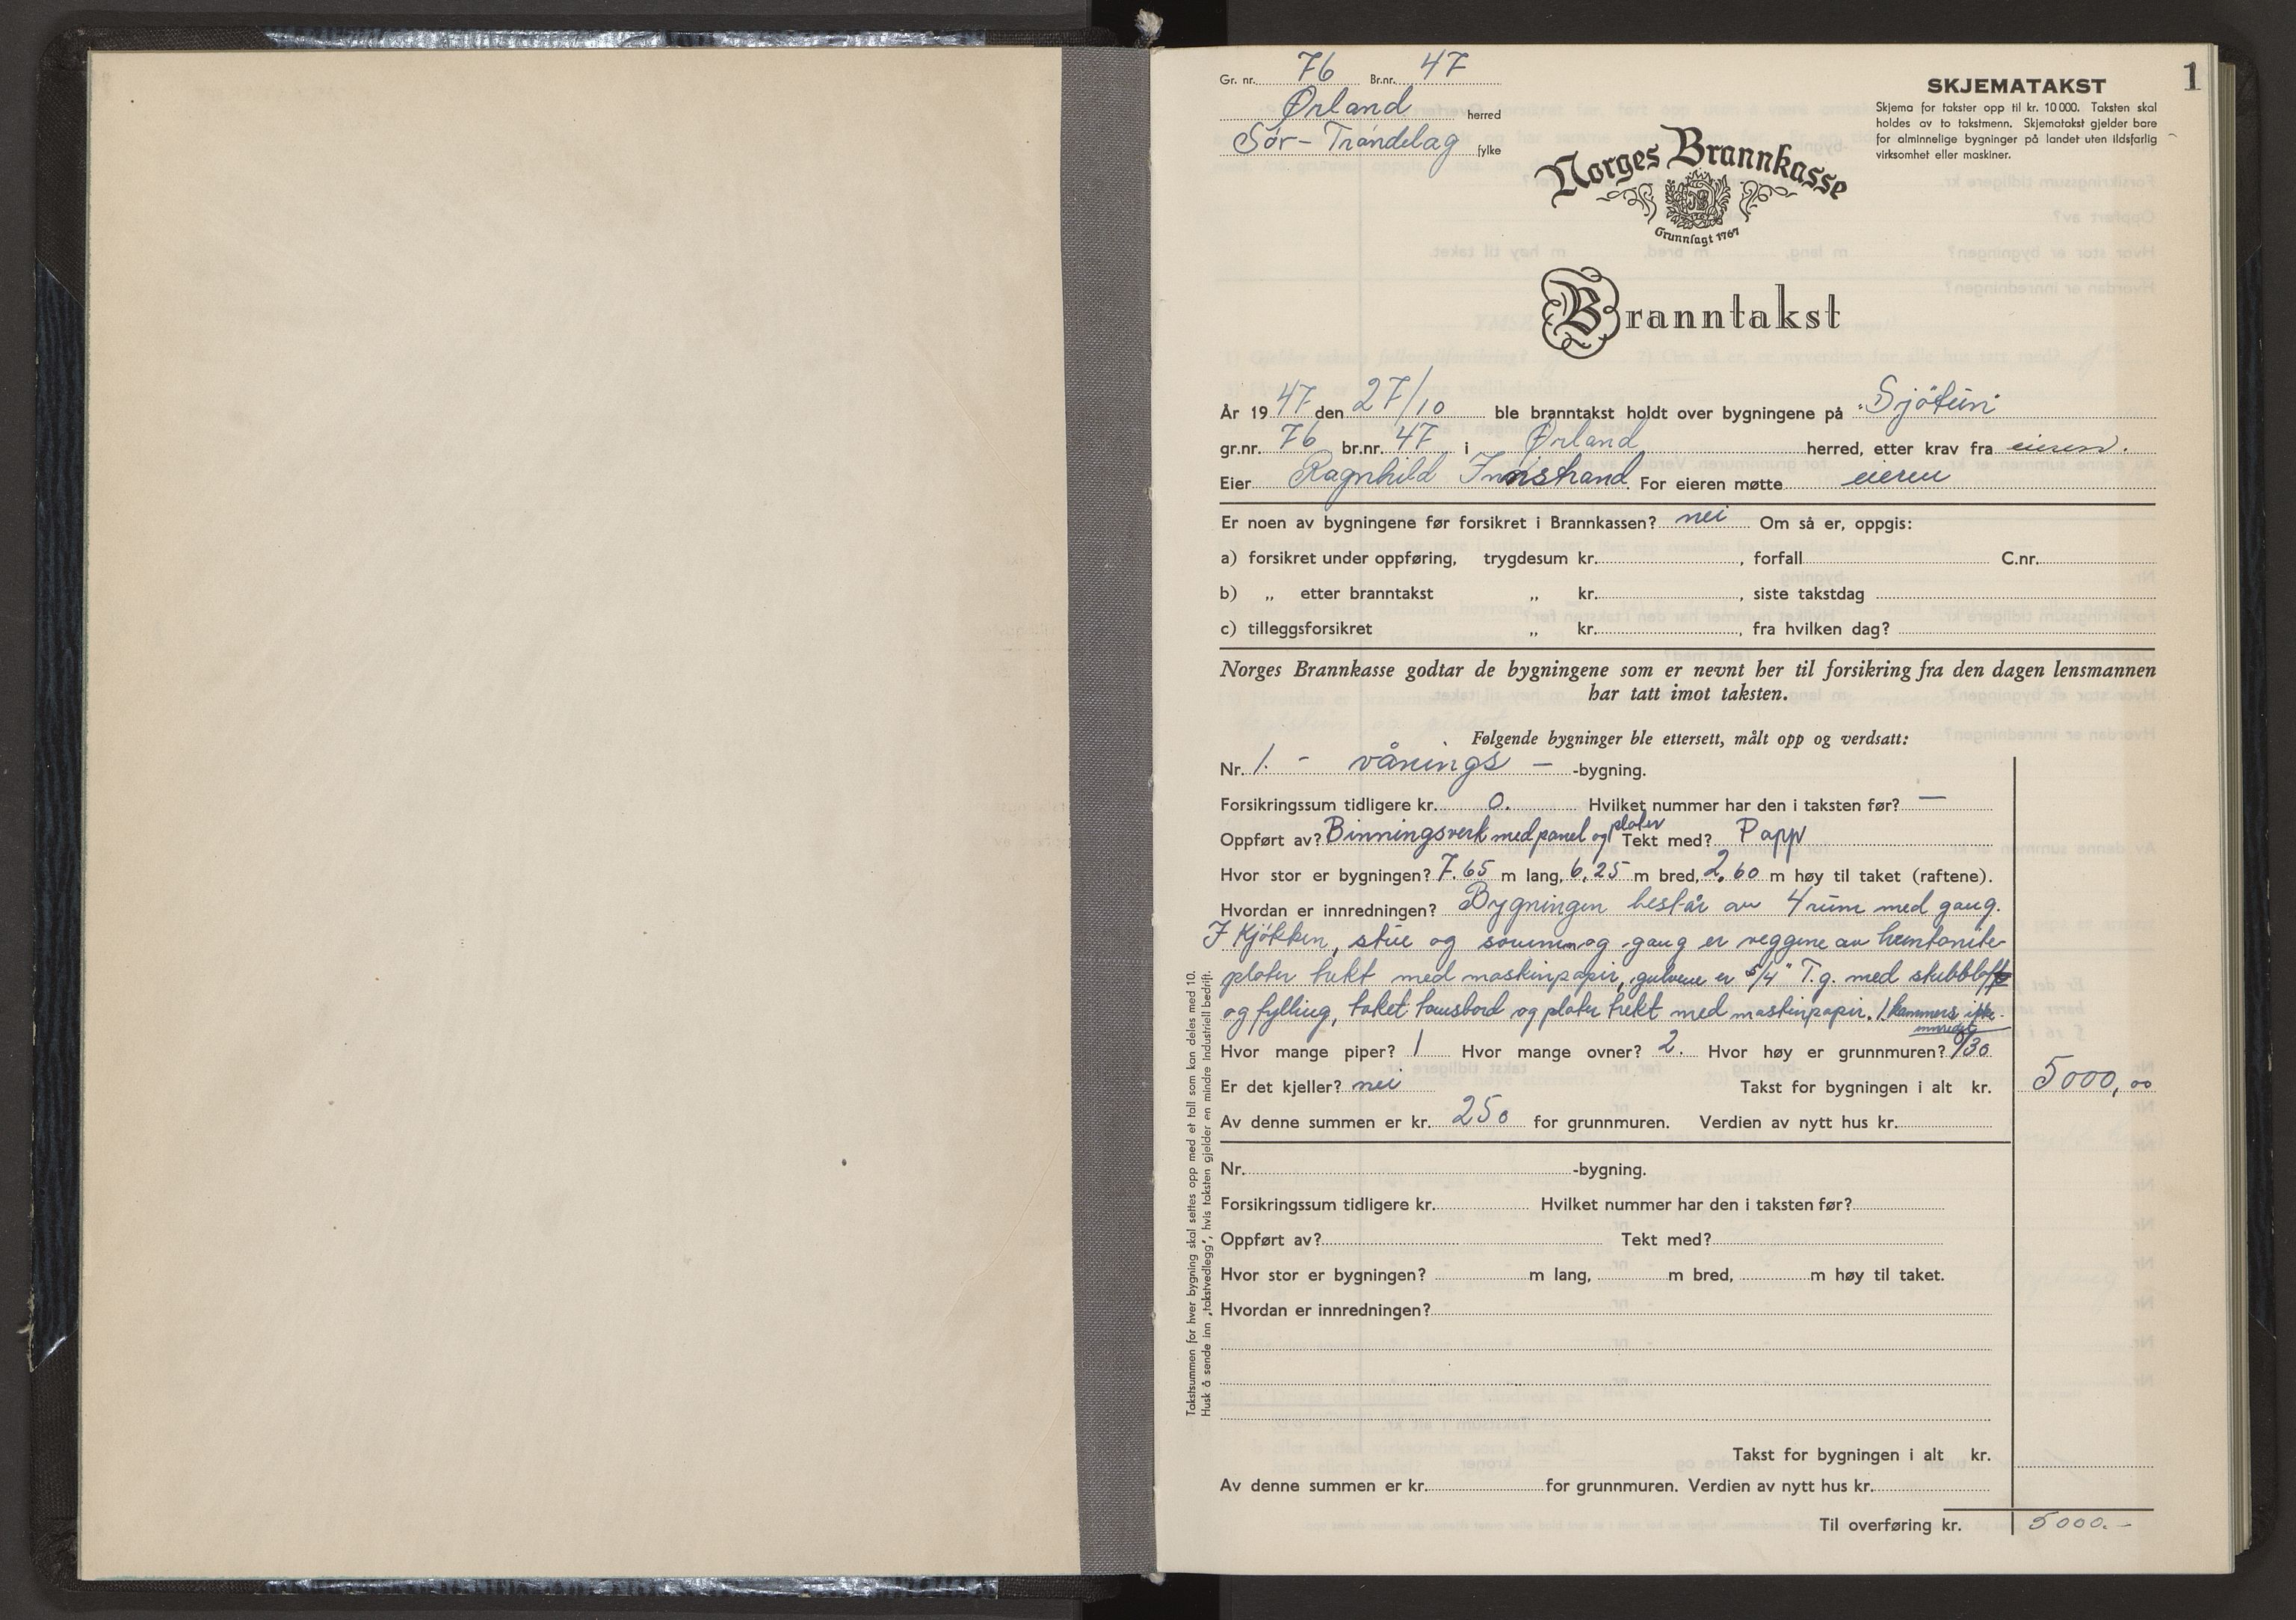 1
Gr. nr. 76 Br.nr. 47
Ørland herred
Sör-Tröndelag fylke
SKJEMATAKST
Skjema for takster opp til kr. 10 000. Taksten skal
holdes av to takstmenn. Skjematakst gjelder bare
for alminnelige bygninger på landet uten ildsfarlig
virksomhet eller maskiner.
Norges Brannkasse
Grunnlagt 1767
Branntakst
År 1947 den 27/10 ble branntakst holdt over bygningene på "Sjötun"
gr.nr. 76 br.nr. 47 i Ørland herred, etter krav fra eieren.
Eier Ragnhild Innstrand. For eieren møtte eieren
Er noen av bygningene før forsikret i Brannkassen? nei Om så er, oppgis:
a) forsikret under oppføring, trygdesum kr. , forfall C.nr.
b) „ etter branntakst „ kr. , siste takstdag
c) tilleggsforsikret „ kr. , fra hvilken dag?
Norges Brannkasse godtar de bygningene som er nevnt her til forsikring fra den dagen lensmannen
har tatt imot taksten.
Følgende bygninger ble ettersett, målt opp og verdsatt:
Nr. 1. - vånings - -bygning.
Forsikringssum tidligere kr. 0. Hvilket nummer har den i taksten før? —
Oppført av? Binningsverk med panel og plater Tekt med? Papp
Hvor stor er bygningen? 7.65 m lang, 6,25 m bred, 2,60 m høy til taket (raftene).
Hvordan er innredningen? Bygningen består av 4 rum med gang.
I Kjökken, stue og sovrum og gang er veggene av huntonite-
plater trekt med maskinpapir, gulvene er 5/4" T.g. med stubbloft
og fylling, taket tausbord og plater trekt med maskinpapir. 1 kammers ikke
innredet
Hvor mange piper? 1 Hvor mange ovner? 2. Hvor høy er grunnmuren? 0/30
Er det kjeller? nei Takst for bygningen i alt kr. 5000,00
Av denne summen er kr. 250 for grunnmuren. Verdien av nytt hus kr.
Nr. -bygning.
Forsikringssum tidligere kr. Hvilket nummer har den i taksten før?
Oppført av? Tekt med?
Hvor stor er bygningen? m lang, m bred, m høy til taket.
Hvordan er innredningen?
Takst for bygningen i alt kr.
Av denne summen er kr. for grunnmuren. Verdien av nytt hus kr.
Til overføring kr. 5000.-
Takstsummen for hver bygning skal settes opp med et tall som kan deles med 10.
Husk å sende inn „takstvedlegg", hvis taksten gjelder en mindre industriell bedrift.